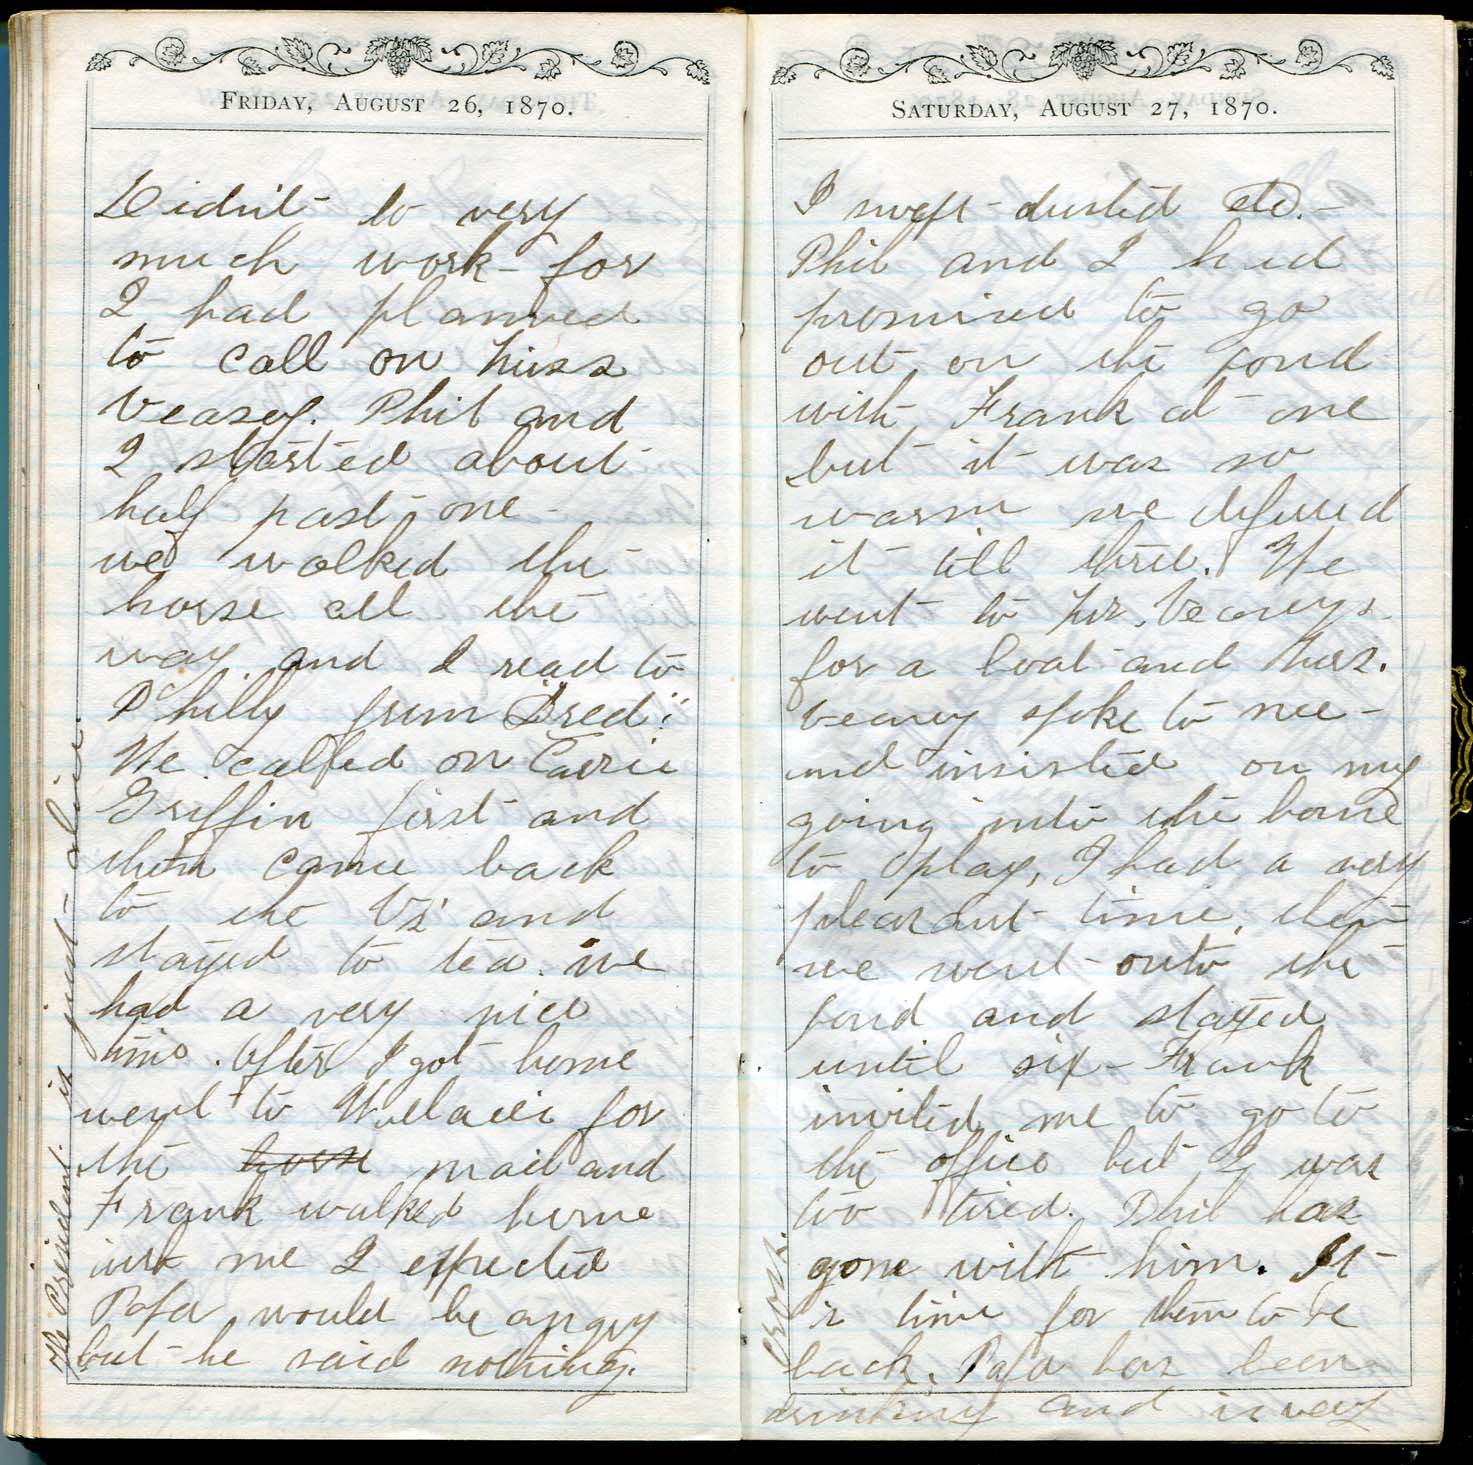 FRIDAY, AUGUST 26, 1870.
Didn't do very
much work - for
I had planned
to call on Miss
Veasey. Phil and
I started about
half past one -
we walked the
horse all the
way and I read to
Philly from "Dred".
We called on Carrie
Griffin first and
then came back
to the Vs' and
stayed to tea. we
had a very nice
time. After I got home
went to Wallace's for
the horse mail and
Frank walked home
with me I expected
Papa would be angry
but - he said nothing.
The President is just - alive.
SATURDAY, AUGUST 27, 1870.
I swept - dusted etc. -
Phil and I had
promised to go
out on the pond
with Frank at one
but it was so
warm we defered
it till three. We
went to Mr. Veaseys
for a boat and Mrs.
Veasey spoke to me -
and insisted on my
going into the house
to play, I had a very
pleasant time, then
we went - onto the
pond and stayed
until six - Frank
invited me to go to
the office but I was
too tired. Phil has
gone with him. It -
is time for them to be
back. Papa has been
drinking and is very
cross.